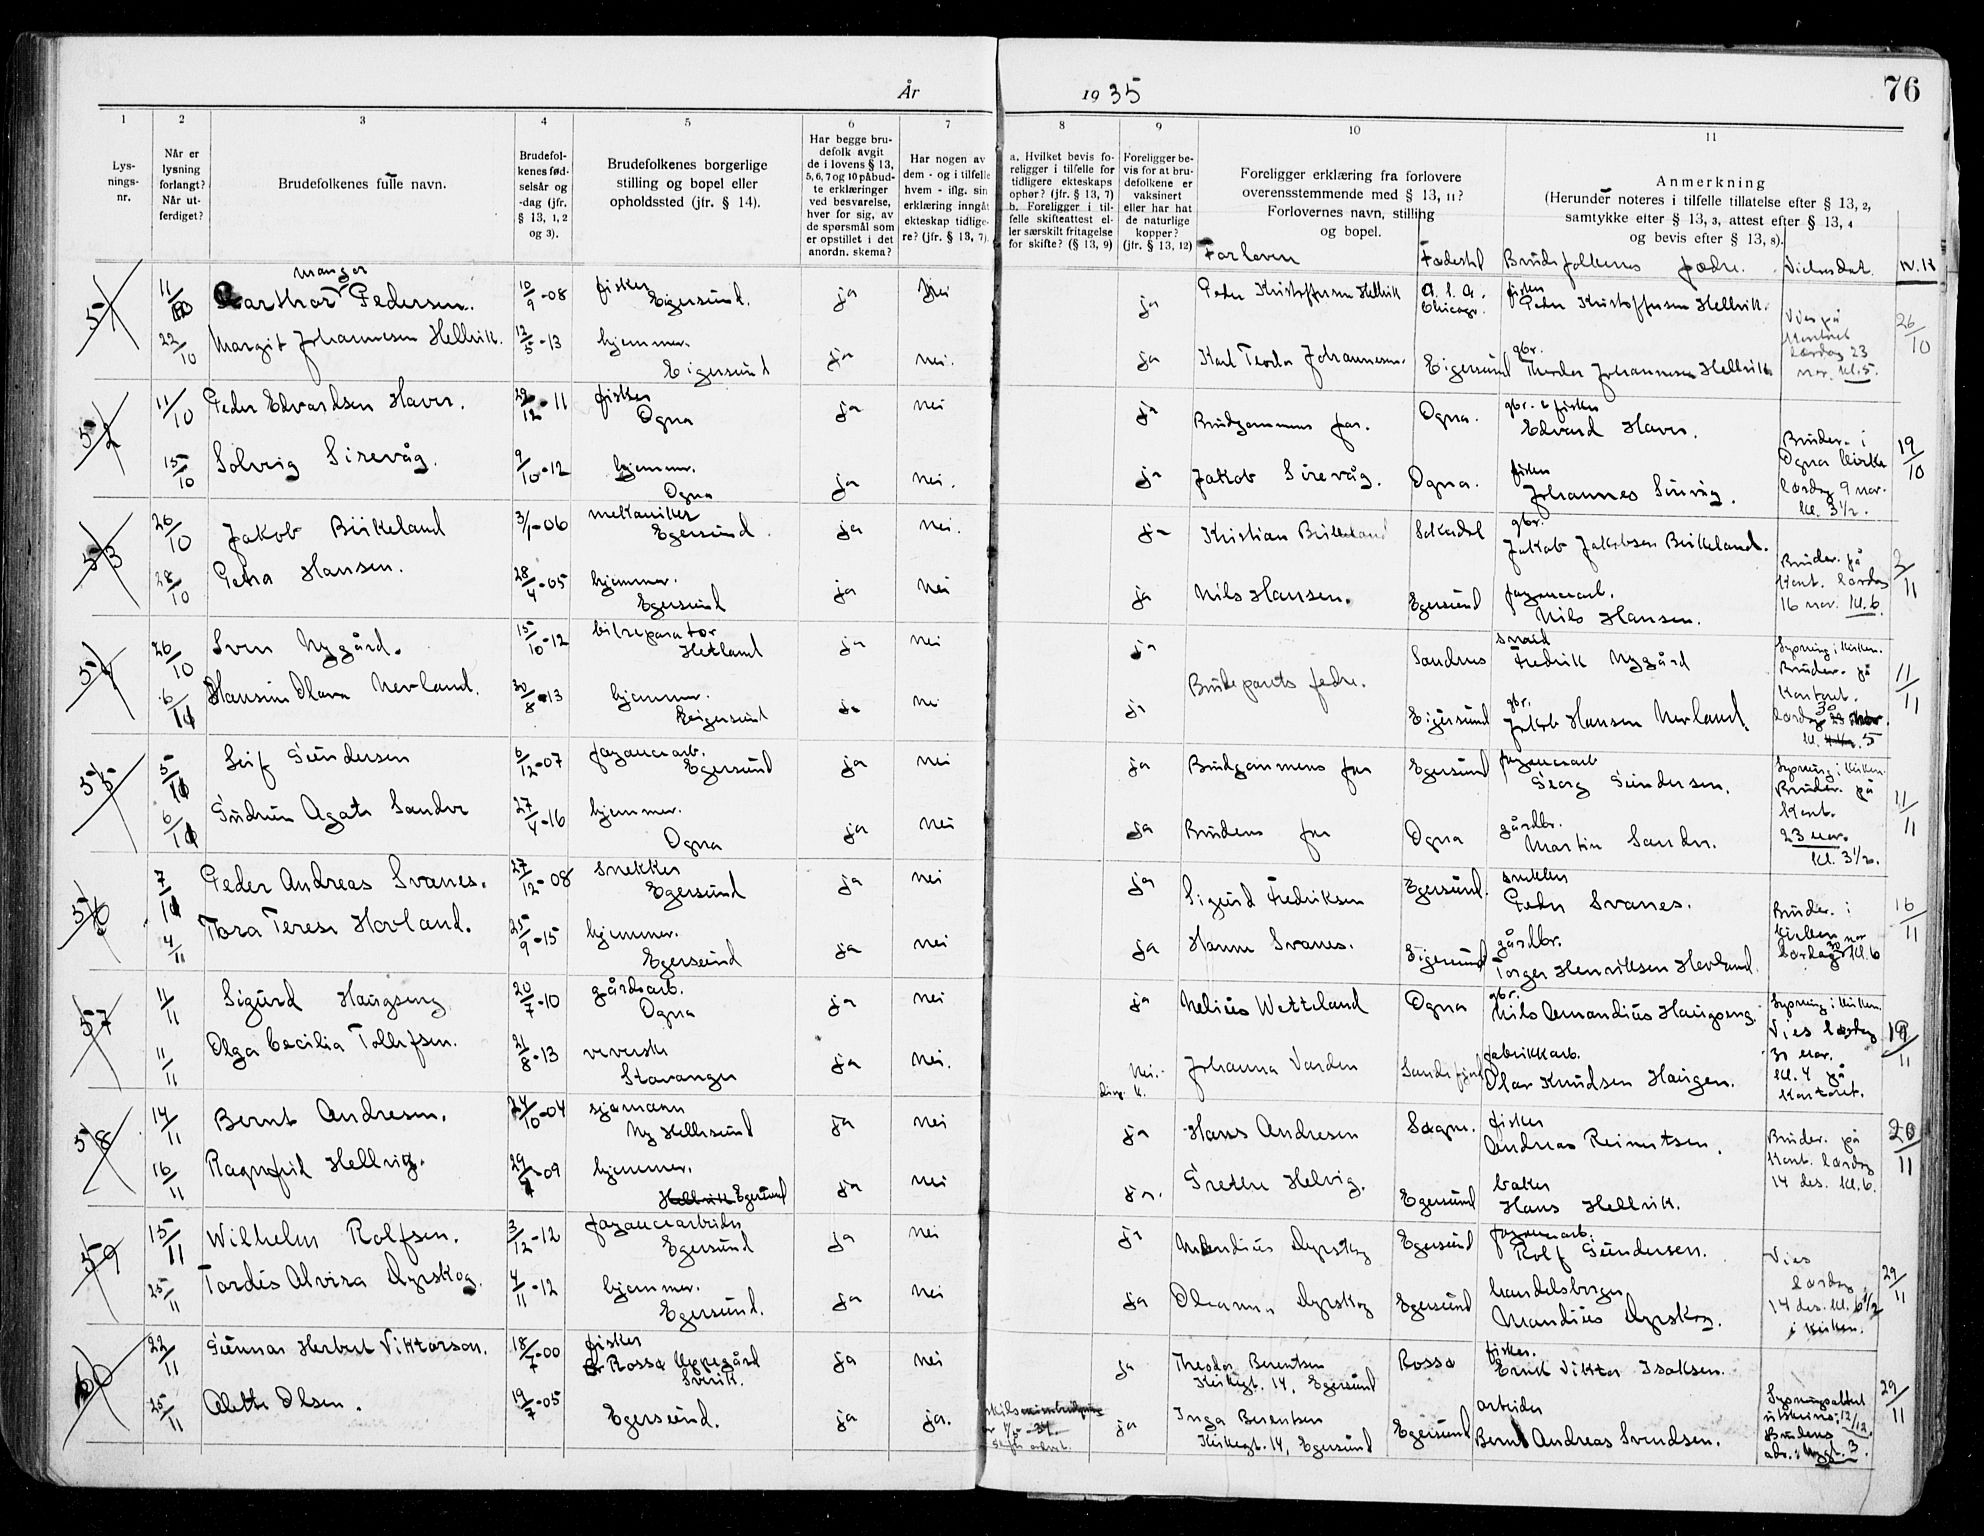 År 1935
76
1 2 3 4 5 6 7 8 9 10 11
Lys-
nings-
nr.
Når er
lysning
forlangt?
Når ut-
ferdiget?
Brudefolkenes fulle navn.
Brudefol-
kenes fød-
selsår og
-dag (jfr.
§ 13, 1, 2
og 3).
Brudefolkenes borgerlige
stilling og bopel eller
opholdssted (jfr. § 14).
Har begge bru-
defolk avgit
de i lovens § 13,
5, 6, 7 og 10 påbud-
te erklæringer
ved besvarelse,
hver for sig, av
de spørsmål som
er opstillet i det
anordn. skema?
Har nogen av
dem - og i tilfelle
hvem - iflg. sin
erklæring inngåt
ekteskap tidlige-
re? (jfr. § 13, 7)
a. Hvilket bevis fo-
religger i tilfelle for
tidligere ekteskaps
ophør? (jfr. § 13, 7)
b. Foreligger i til-
felle skifteattest el-
ler særskilt fritagelse
for skifte? (§ 13, 9)
Foreligger be-
vis for at bru-
defolkene er
vaksinert
eller har hat
de naturlige
kopper?
(jfr. § 13, 12)
Foreligger erklæring fra forlovere
overensstemmende med § 13, 11?
Forlovernes navn, stilling
og bopel.
Anmerkning
(Herunder noteres i tilfelle tillatelse efter § 13, 2,
samtykke efter § 13, 3, attest efter § 13, 4
og bevis efter § 13, 8).
Forlovere Fødested Brudefolkenes fedre. Vielsesdat. N.K
51 11/10 Manger Pedersen. 10/9-08 fisker Egersund. ja nei ja Peder Kristoffersen Hellvik Chicago. fisker Peder Kristoffersen Hellvik. 26/10
22/10 Margit Johannesen Hellvik. 12/5-13 hjemmev. Eigersund ja nei. ja Karl Teodor Johannesen. Eigersund gbr. Theodor Johannesen Hellvik Vies på kontoret lørdag 23 nov. kl. 5.
52 11/10 Peder Edvardsen Haver. 29/12-11 fisker Ogna ja nei ja Brudgommens far. Ogna. gbr. & fisker Edvard Haver. 19/10
15/10 Solveig Sirevåg. 9/10-12 hjemmev. Ogna ja nei. ja Jakob Sirevåg. Ogna. fisker Johannes Sirevåg. Brudev. i Ogna kirke lørdag 9 nov. kl. 3½.
53 26/10 Jakob Birkeland 3/1-06 mekaniker Egersund. ja nei. ja Kristian Birkeland Sokndal gbr. Jakob Jakobsen Birkeland. 2/11
28/10 Petra Hansen. 28/4-05 hjemmev. Egersund ja nei ja Nils Hansen. Egersund fayancearb. Nils Hansen. Brudev. på kont. lørdag 16 nov. kl. 6.
54 26/10 Sven Nygård. 15/10-12 bilreparatør Hetland ja nei ja Brudeparets fedre. Sandnes smed Fredrik Nygård 11/11
6/11 Hansine Olava Nerland. 30/8-13 hjemmev. Eigersund ja nei ja Eigersund gbr. Jakob Hansen Nerland Lysning i kirken. Brudev. på kontoret. lørdag 30 kl. 5
55 5/11 Leif Gundersen 6/12-07 fayancearb. Egersund ja nei ja Brudgommens far Egersund fayancearb Georg Gundersen. 11/11
6/11 Gudrun Agate Sandve 27/4-16 hjemmev. Ogna ja nei ja Brudens far Ogna gårdbr. Martin Sandve. Lysning i kirken. Brudev. på kont. 23 nov. kl. 3½.
56 7/11 Peder Andreas Svanes. 27/12-08 snekker Egersund ja nei ja Sigurd Fredriksen Egersund. snekker Peder Svanes. 16/11
4/11 Tora Terese Hovland. 25/9-15 hjemmev. Egersund ja nei ja Hanne Svanes. Eigersund gårdbr. Torger Henriksen Hovland. Brudev. i kirken lørdag 30 nov kl. 6
57 11/11 Sigurd Haugseng 20/7-10 gårdsarb. Ogna ja nei ja Nelius Wetteland Ogna gbr. Nils Amandius Haugseng. 19/11
11/11 Olga Cecilia Tollefsen. 21/8-13 veverske Stavanger ja nei. nei. Johanna Varden Sandefjord fabrikkarb. Olav Knudsen Haugen. Lysning i kirken. Vies lørdag 30 nov. kl. 4 på kontoret.
58 14/11 Bernt Andresen. 24/10-04 sjømann Ny Hellesund ja nei ja Hans Andresen Søgne. fisker Andreas Reinertsen. 20/11
16/11 Ragnfrid Hellvig. 29/7-09 hjemmev. Hellvik Egersund ja nei ja. Grethe Helvig. Egersund baker Hans Hellvik. Brudev. på kont. lørdag 14 des. kl. 6.
59 15/11 Wilhelm Rolfsen. 3/12-12 fayancearbeider Egersund ja nei ja Mandius Dyrskog Egersund fayancearb. Rolf Gundersen. 29/11
25/11 Tordis Alvira Dyrskog. 4/11-12 hjemmev. Egersund. ja nei ja Oleanna Dyrskog Egersund handelsborger Mandius Dyrskog. Vies lørdag 14 des. kl. 6½ i kirken.
60 22/11 Gunnar Herbert Viktorson. 18/7-00 fisker Rossø Uppegård Sverik. ja nei ja Theodor Berentsen Kirkegt. 14, Egersund Rossø fisker. Ernst Viktor Isaksen. 29/11
25/11 Alette Olsen. 19/7-05 Egersund. ja ja. ja Inga Berentsen Kirkegt. 14, Egersund Egersund arbeider Bernt Andreas Svendsen. Lysningsattest utskrevet 12/12. Brudens adr.: Nygt. 3.